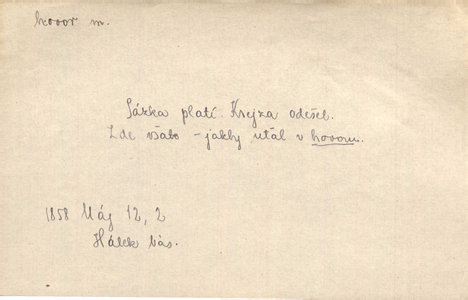 hovor m.
Sázka platí. Krejza odešel.
Zde však – jakby uťal v hovoru.
1858 Máj 12, 2
Hálek bás.